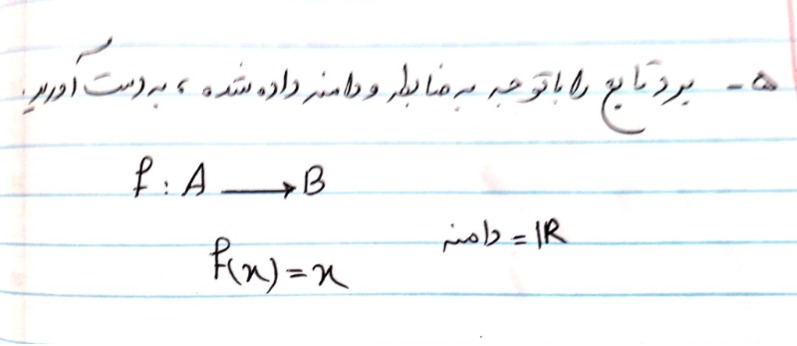 ۵- برد تابع را با توجه به ضابطه و دامنه داده شده ، به دست آورید.
f : A ⟶ B
دامنه = ℝ
f(x) = x